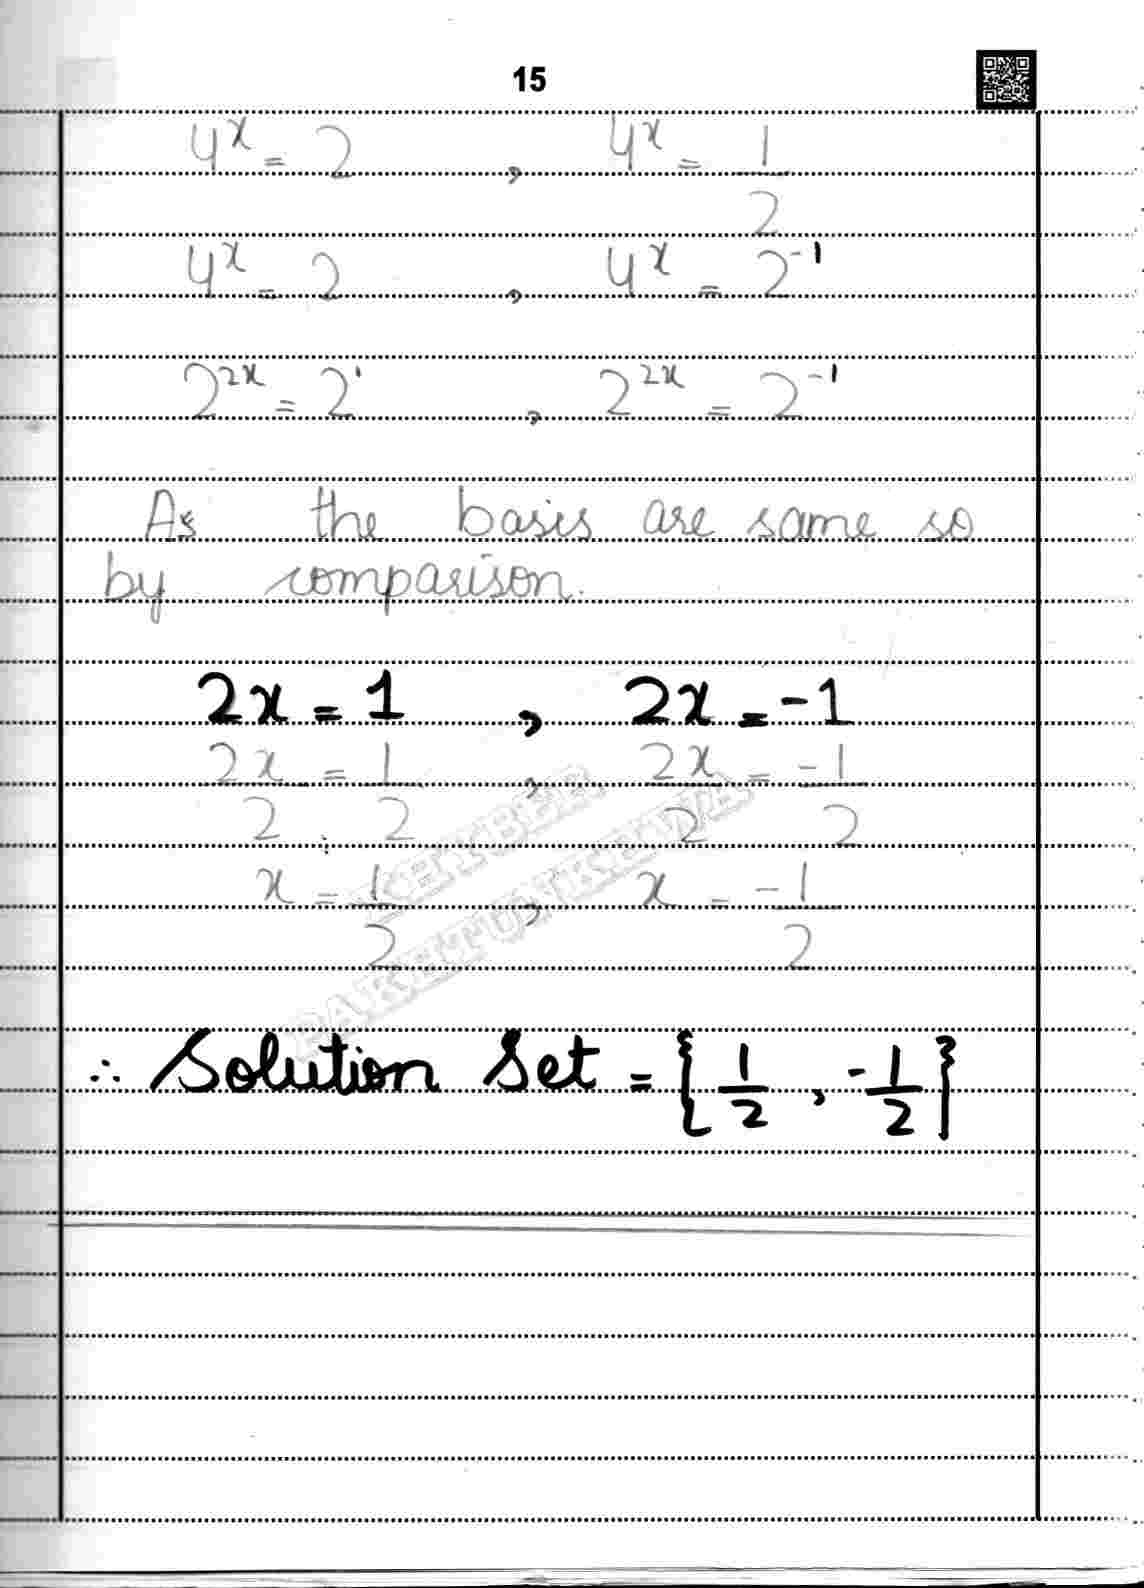 15
4^x = 2 , 4^x = 1/2
4^x = 2 , 4^x = 2^-1
2^2x = 2^1 , 2^2x = 2^-1
As the basis are same so
by comparison.
2x = 1 , 2x = -1
2x/2 = 1/2 , 2x/2 = -1/2
x = 1/2 , x = -1/2
∴ Solution Set = { 1/2 , -1/2 }
KHYBER
PAKHTUNKHWA